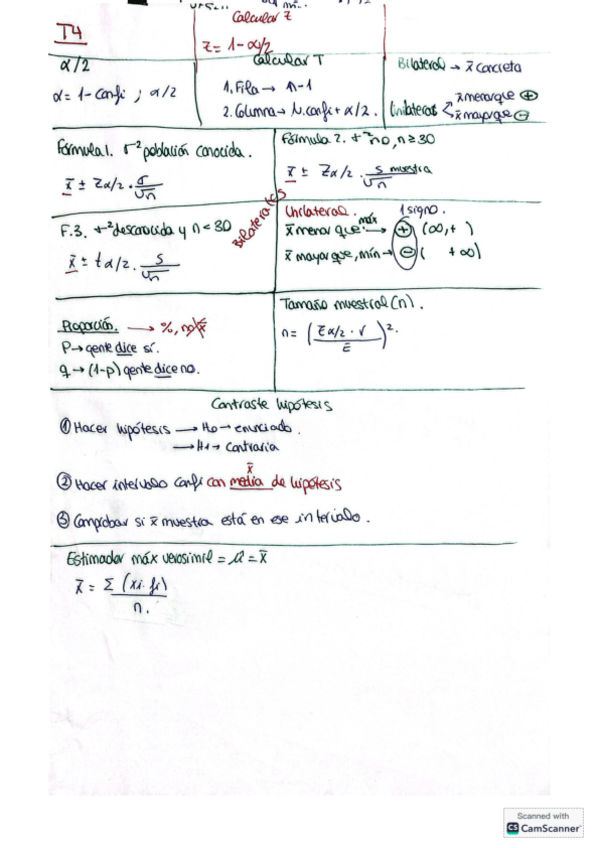 Calcular Z
T4
Z = 1 - α/2
α/2
α = 1 - confi ; α/2
Calcular T
1. Fila → n-1
2. Columna → N. confi + α/2.
Bilateral → x̄ concreta
Unilateral
x̄ menor que ⊕
x̄ mayor que ⊖
Fórmula 1. σ² población conocida.
x̄ ± Zα/2 · σ/√n
Fórmula 2. σ² no, n ≥ 30
x̄ ± Zα/2 · s muestra/√n
F.3. σ² desconocida y n < 30
x̄ ± tα/2 · s/√n
Bilaterales
Unilateral. 1 signo.
x̄ menor que, máx → ⊕ (∞, + )
x̄ mayor que, mín → ⊖ ( +∞)
Proporción. → %, no x̄
P → gente dice sí.
q → (1-p) gente dice no.
Tamaño muestral (n).
n = (Zα/2 · σ / E)².
Contraste hipótesis
① Hacer hipótesis → H0 → enunciado.
→ H1 → contraria
x̄
② Hacer intervalo confi con media de hipótesis
③ Comprobar si x̄ muestra está en ese intervalo.
Estimador máx verosimil = μ = x̄
x̄ = Σ (xi · fi) / n.
Scanned with
CS CamScanner